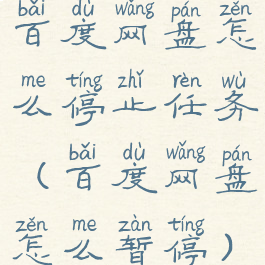 bǎi dù wǎng pán zěn
百度网盘怎
me tíng zhǐ rèn wù
么停止任务
bǎi dù wǎng pán
（百度网盘
zěn me zàn tíng
怎么暂停）